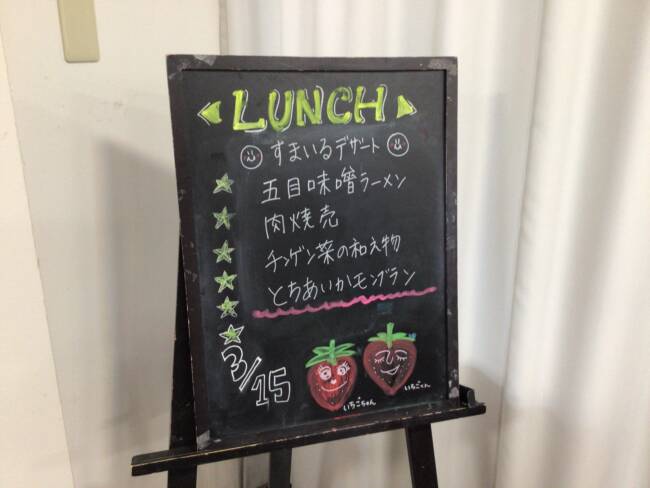 LUNCH
すまいるデザート
五目味噌ラーメン
肉焼売
チンゲン菜の和え物
とちあいかモンブラン
3/15
いちごちゃん
いちごくん